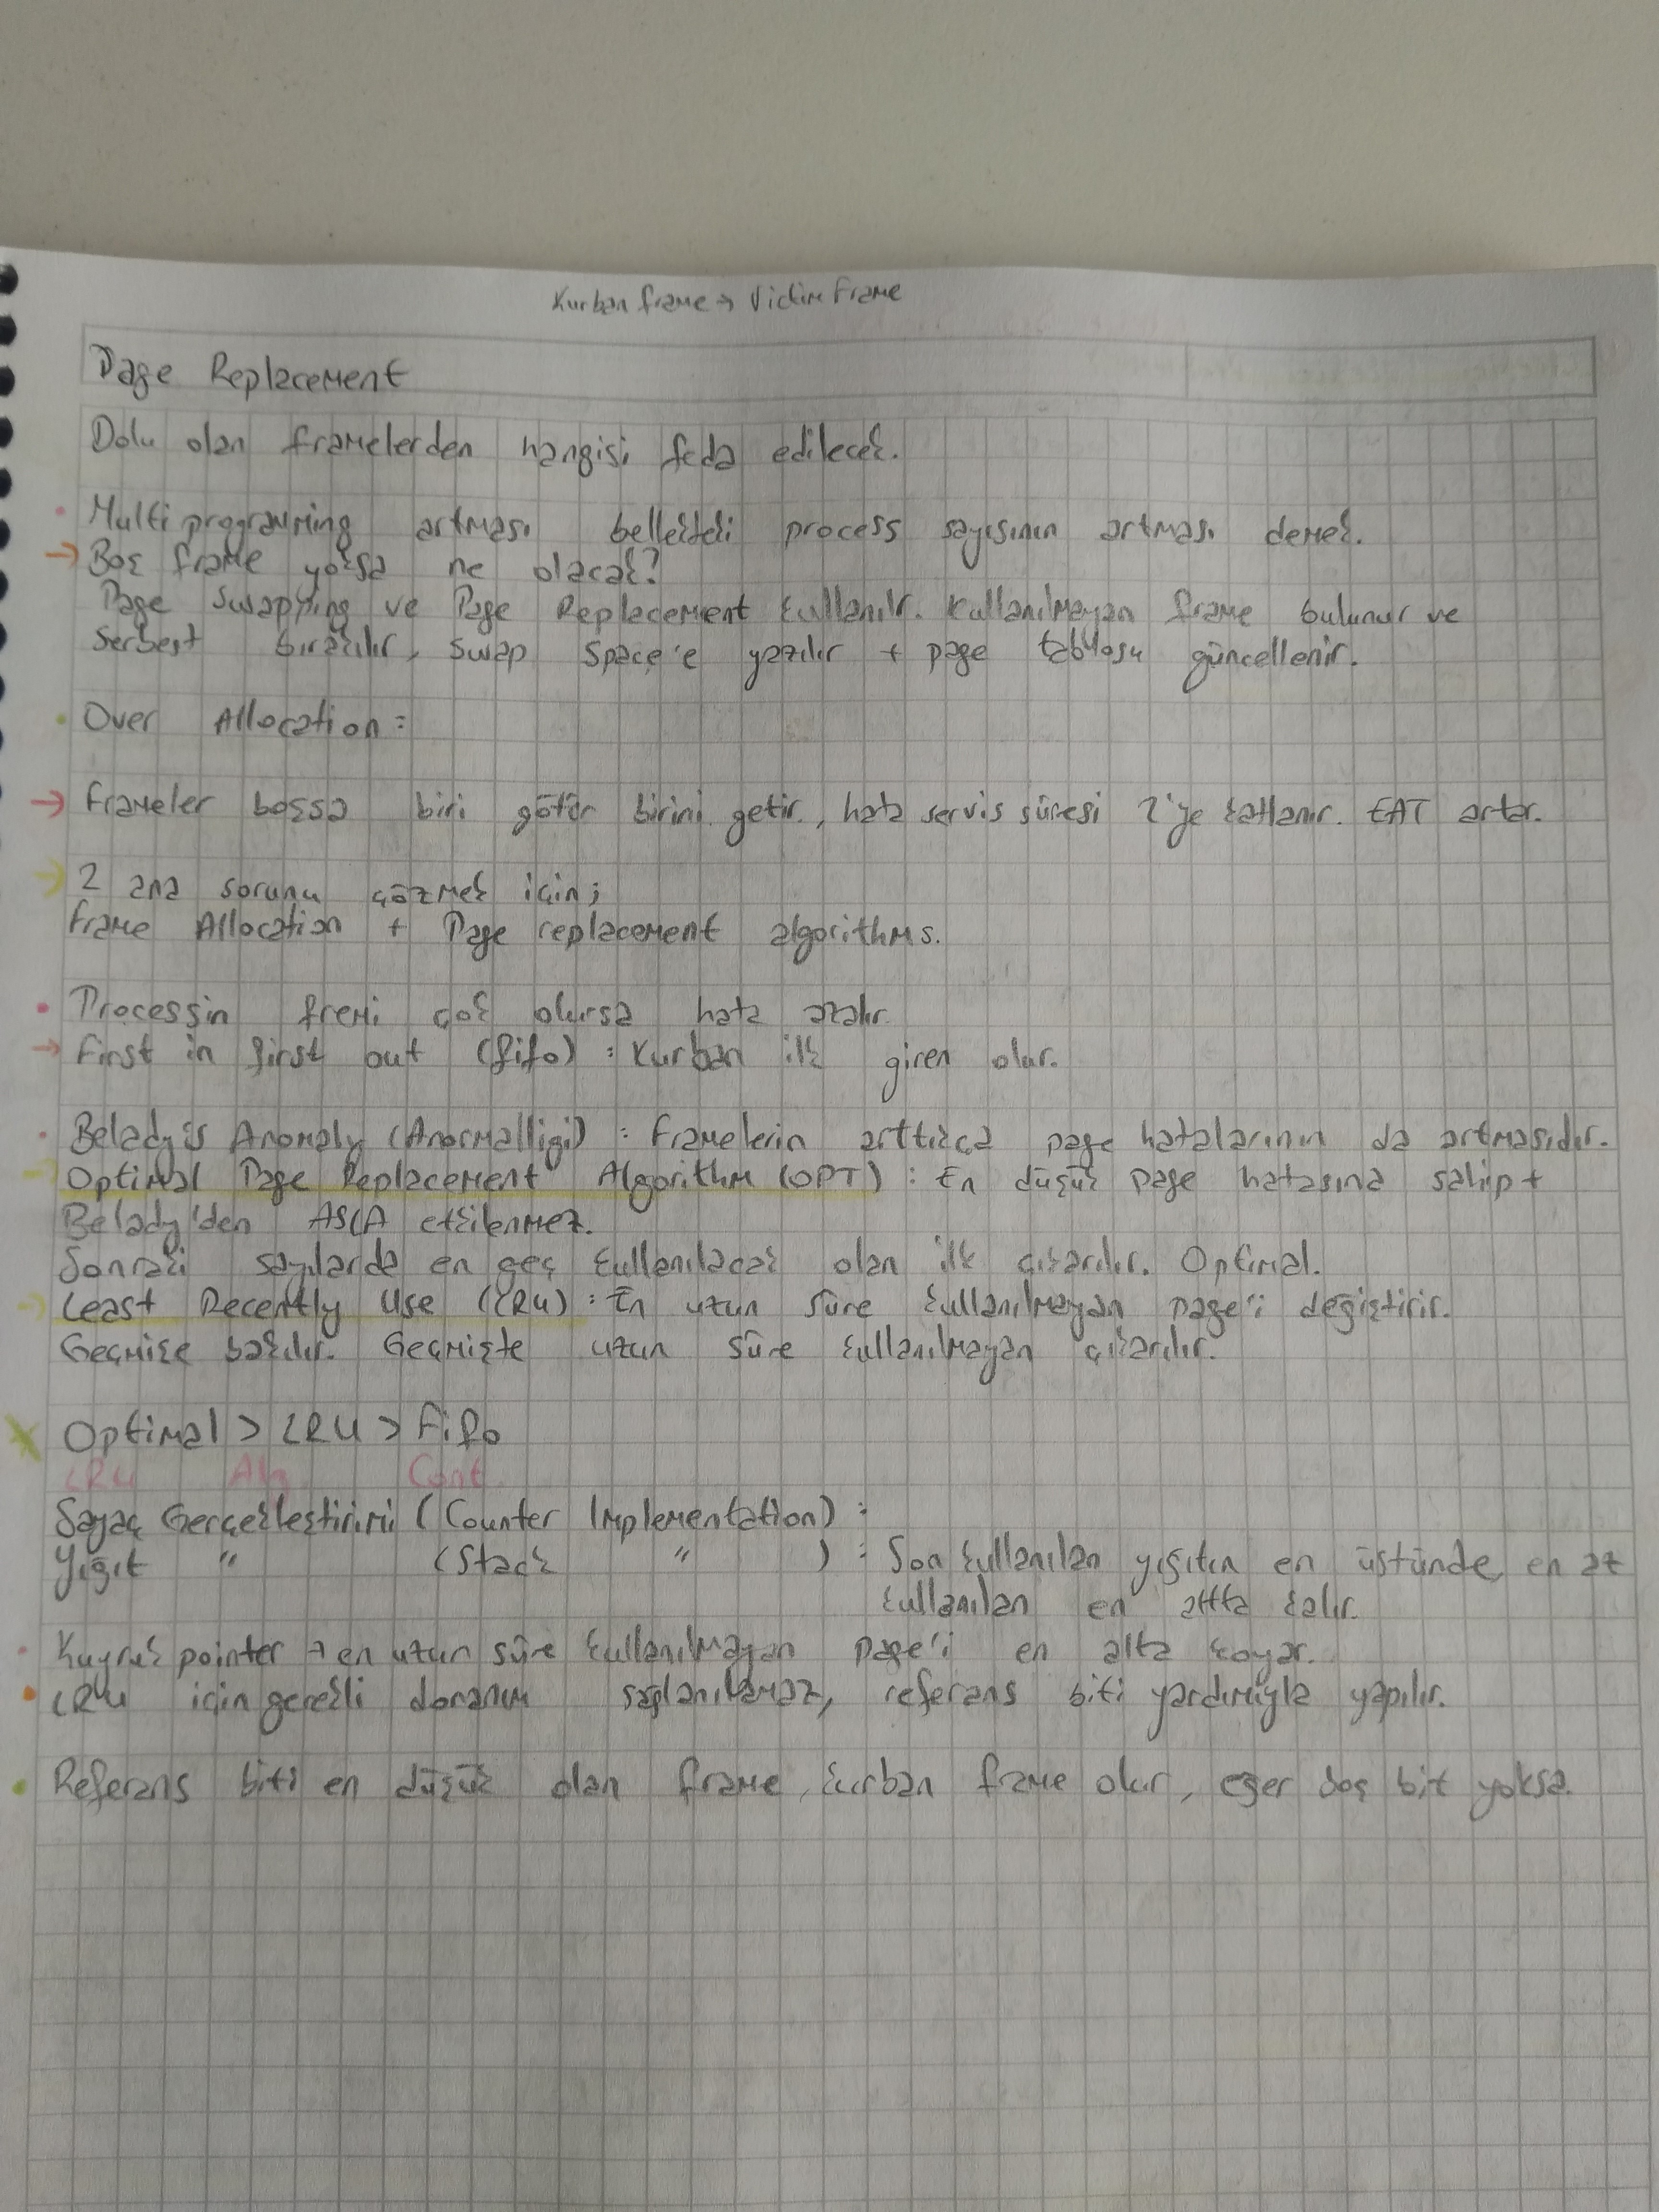 Kurban frame → Victim Frame
Page Replacement
Dolu olan framelerden hangisi feda edilecek.
Multiprogramming artması bellekteki process sayısının artması demek.
→ Boş frame yoksa ne olacak?
Page Swapping ve Page Replacement kullanılır. Kullanılmayan frame bulunur ve
serbest bırakılır, swap space'e yazılır + page tablosu güncellenir.
Over Allocation:
→ Frameler boşsa biri götür birini getir, hata servis süresi 2'ye katlanır. EAT artar.
→ 2 ana sorunu çözmek için;
Frame Allocation + Page replacement algorithms.
Processin fremi çok olursa hata azalır.
→ First in first out (fifo) : Kurban ilk giren olur.
Belady's Anomaly (Anormalligi) : Framelerin arttıkça page hatalarının da artmasıdır.
→ Optimal Page Replacement Algorithm (OPT) : En düşük page hatasına sahip +
Belady'den ASLA etkilenmez.
Sonraki sayılarda en geç kullanılacak olan ilk çıkarılır. Optimal.
→ Least Recently Use (LRU) : En uzun süre kullanılmayan page'i değiştirir.
Geçmişe bakılır. Geçmişte uzun süre kullanılmayan çıkarılır.
Optimal > LRU > Fifo
LRU Alg Cont
Sayaç Gerçekleştirimi (Counter Implementation) :
Yığıt " (Stack " ) : Son kullanılan yığıtın en üstünde, en az
kullanılan en altta kalır.
Kuyruk pointer → en uzun süre kullanılmayan page'i en alta koyar.
LRU için gerekli donanım sağlanılamaz, referans biti yardımiyla yapılır.
Referans biti en düşük olan frame, kurban frame olur, eğer boş bit yoksa.